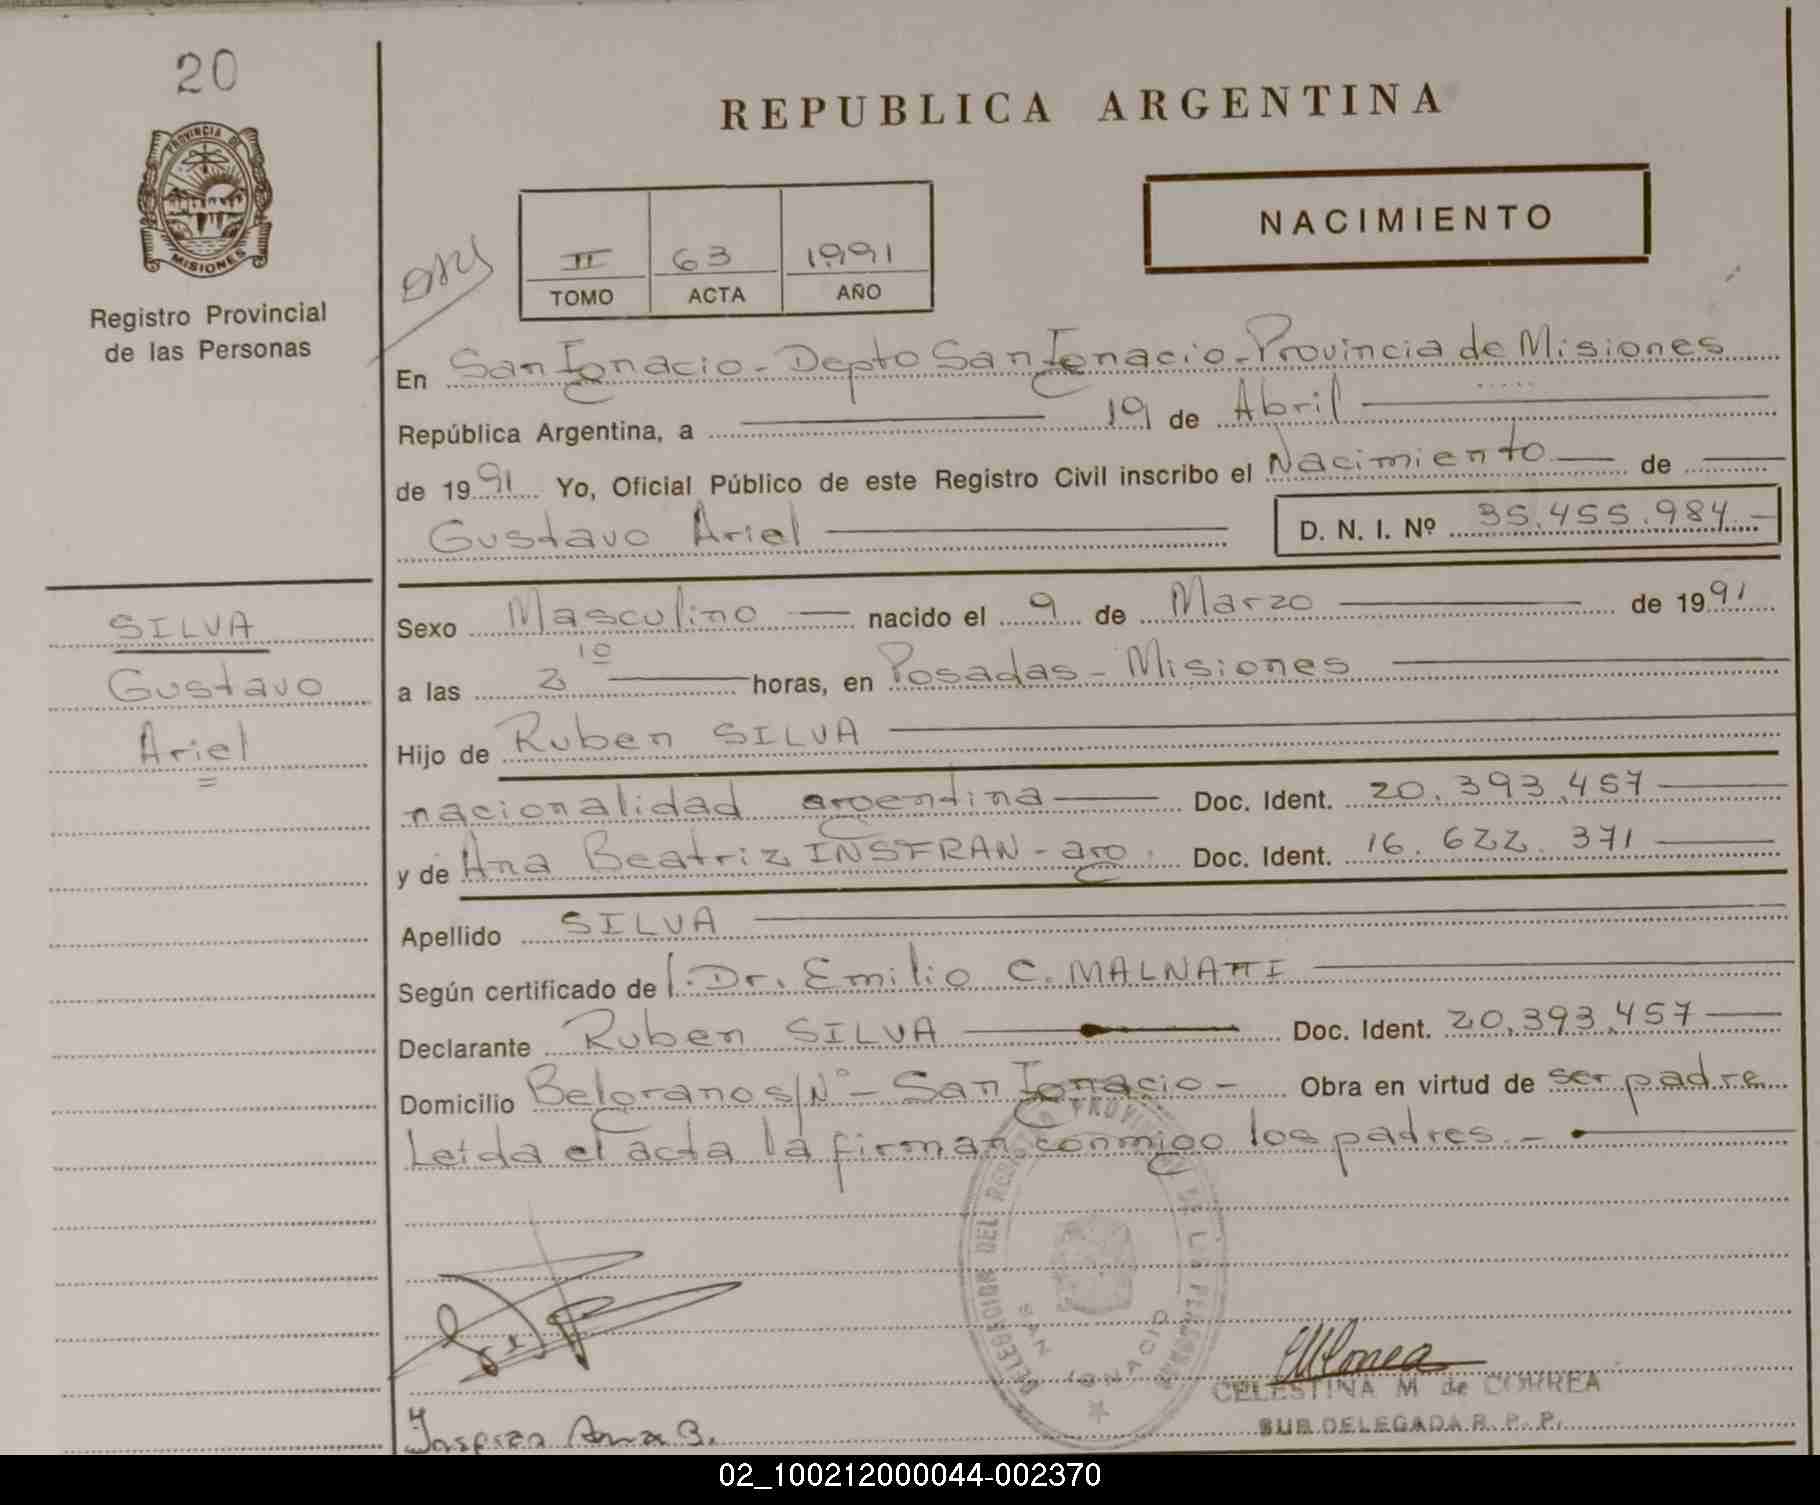 20
PROVINCIA DE
MISIONES
Registro Provincial
de las Personas
REPUBLICA ARGENTINA
NACIMIENTO
II 63 1991
TOMO ACTA AÑO
En San Ignacio - Depto San Ignacio - Provincia de Misiones
República Argentina, a 19 de Abril
de 1991 Yo, Oficial Público de este Registro Civil inscribo el Nacimiento de
Gustavo Ariel D. N. I. Nº 35.455.984
SILVA
Gustavo
Ariel
Sexo Masculino nacido el 9 de Marzo de 1991
a las 2 10 horas, en Posadas - Misiones
Hijo de Ruben SILVA
nacionalidad argentina Doc. Ident. 20.393.457
y de Ana Beatriz INSFRAN - arg. Doc. Ident. 16.622.371
Apellido SILVA
Según certificado de l. Dr. Emilio C. MALNATTI
Declarante Ruben SILVA Doc. Ident. 20.393.457
Domicilio Belgrano s/Nº - San Ignacio - Obra en virtud de ser padre
Leída el acta la firman conmigo los padres. -
DELEGACION DEL REGISTRO PROVINCIAL DE LAS PERSONAS
SAN IGNACIO
CELESTINA M de CORREA
SUB DELEGADA R. P. P.
Insfran Ana B.
02_100212000044-002370